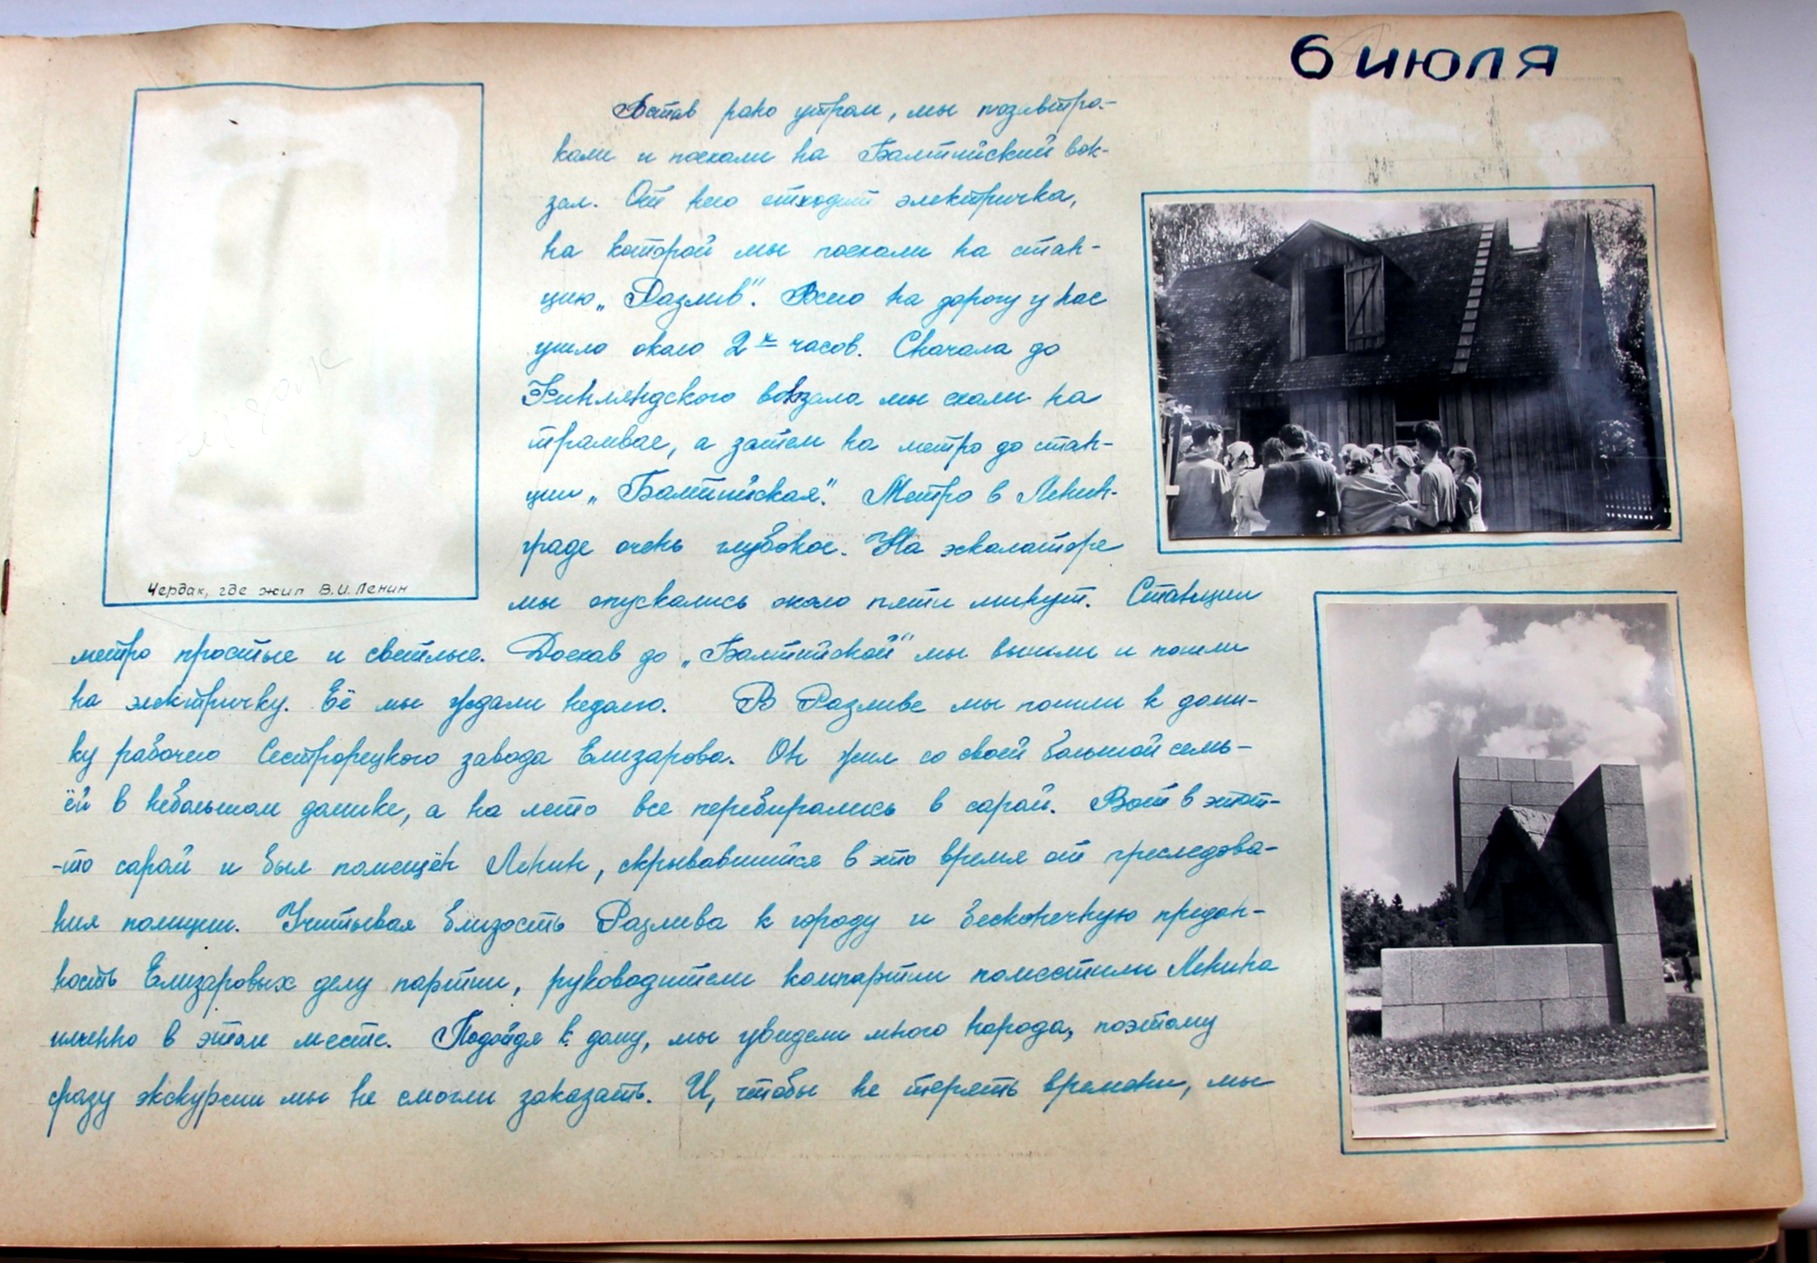 6 июля
Встав рано утром, мы позавтра-
кали и поехали на Балтийский вок-
зал. От него отходит электричка,
на которой мы поехали на стан-
цию „Разлив". Всего на дорогу у нас
ушло около 2х часов. Сначала до
Финляндского вокзала мы ехали на
трамвае, а затем на метро до стан-
ции „Балтийская". Метро в Ленин-
граде очень глубокое. На эскалаторе
мы опускались около пяти минут. Станции
метро простые и светлые. Доехав до „Балтийской" мы вышли и пошли
на электричку. Её мы ждали недолго. В Разливе мы пошли к доми-
ку рабочего Сестрорецкого завода Елизарова. Он жил со своей большой семь-
ёй в небольшом домике, а на лето все перебирались в сарай. Вот в этот-
-то сарай и был помещён Ленин, скрывавшийся в это время от преследова-
ния полиции. Учитывая близость Разлива к городу и бесконечную предан-
ность Елизаровых делу партии, руководители компартии поместили Ленина
именно в этом месте. Подойдя к дому, мы увидели много народа, поэтому
сразу экскурсии мы не смогли заказать. И, чтобы не терять времени, мы
Чердак, где жил В.И.Ленин
чердак